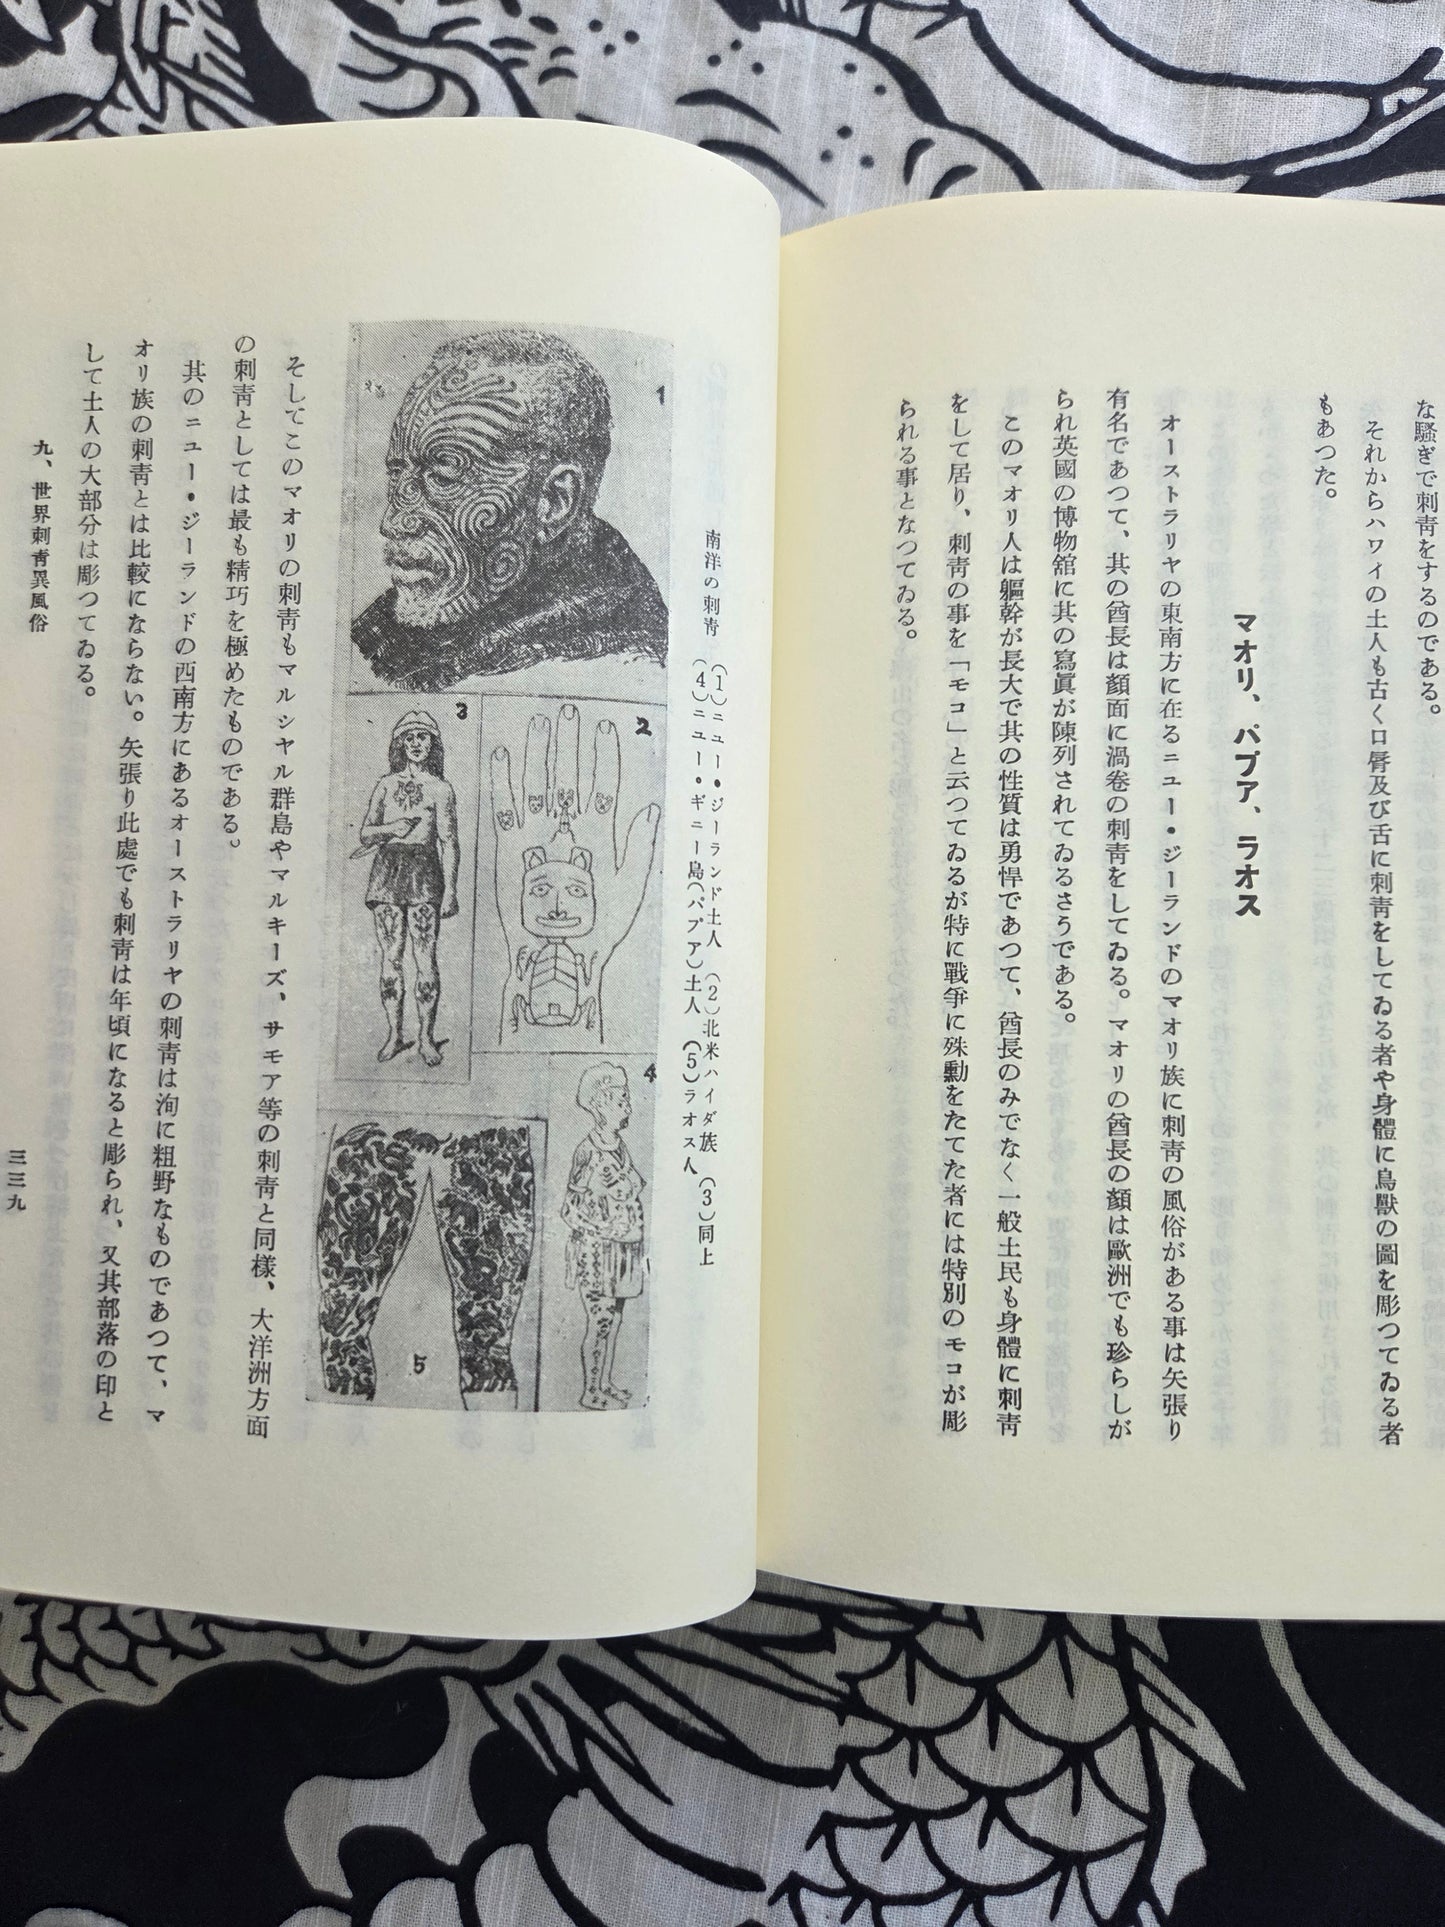 な騷ぎで刺靑をするのである。
それからハワイの土人も古く口脣及び舌に刺靑をしてゐる者や身體に鳥獸の圖を彫つてゐる者
もあつた。
マオリ、パプア、ラオス
オーストラリヤの東南方に在るニュー・ジーランドのマオリ族に刺靑の風俗がある事は矢張り
有名であつて、其の酋長は顏面に渦卷の刺靑をしてゐる。マオリの酋長の顏は歐洲でも珍らしが
られ英國の博物舘に其の寫眞が陳列されてゐるさうである。
このマオリ人は軀幹が長大で其の性質は勇悍であつて、酋長のみでなく一般土民も身體に刺靑
をして居り、刺靑の事を「モコ」と云つてゐるが特に戰爭に殊勳をたてた者には特別のモコが彫
られる事となつてゐる。
南洋の刺靑 (1)ニュー・ジーランド土人 (2)北米ハイダ族 (3)同上
(4)ニュー・ギニー島(パプア)土人 (5)ラオス人
1
2
3
4
5
そしてこのマオリの刺靑もマルシヤル群島やマルキーズ、サモア等の刺靑と同樣、大洋洲方面
の刺靑としては最も精巧を極めたものである。
其のニュー・ジーランドの西南方にあるオーストラリヤの刺靑は洵に粗野なものであつて、マ
オリ族の刺靑とは比較にならない。矢張り此處でも刺靑は年頃になると彫られ、又其部落の印と
して土人の大部分は彫つてゐる。
九、世界刺靑異風俗
三三九